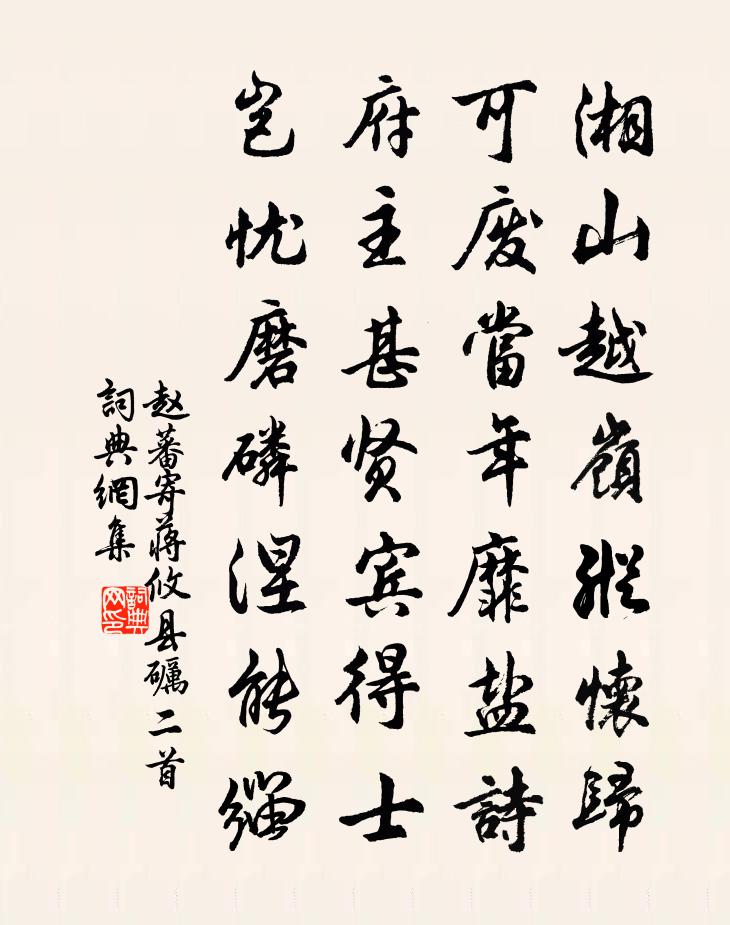 湘山越嶺縱懷歸
可废當年靡盐詩
府主甚贤宾得士
岂忧磨磷涅能缁
赵蕃寄蒋攸县礪二首
詞典網集
詞典
网印